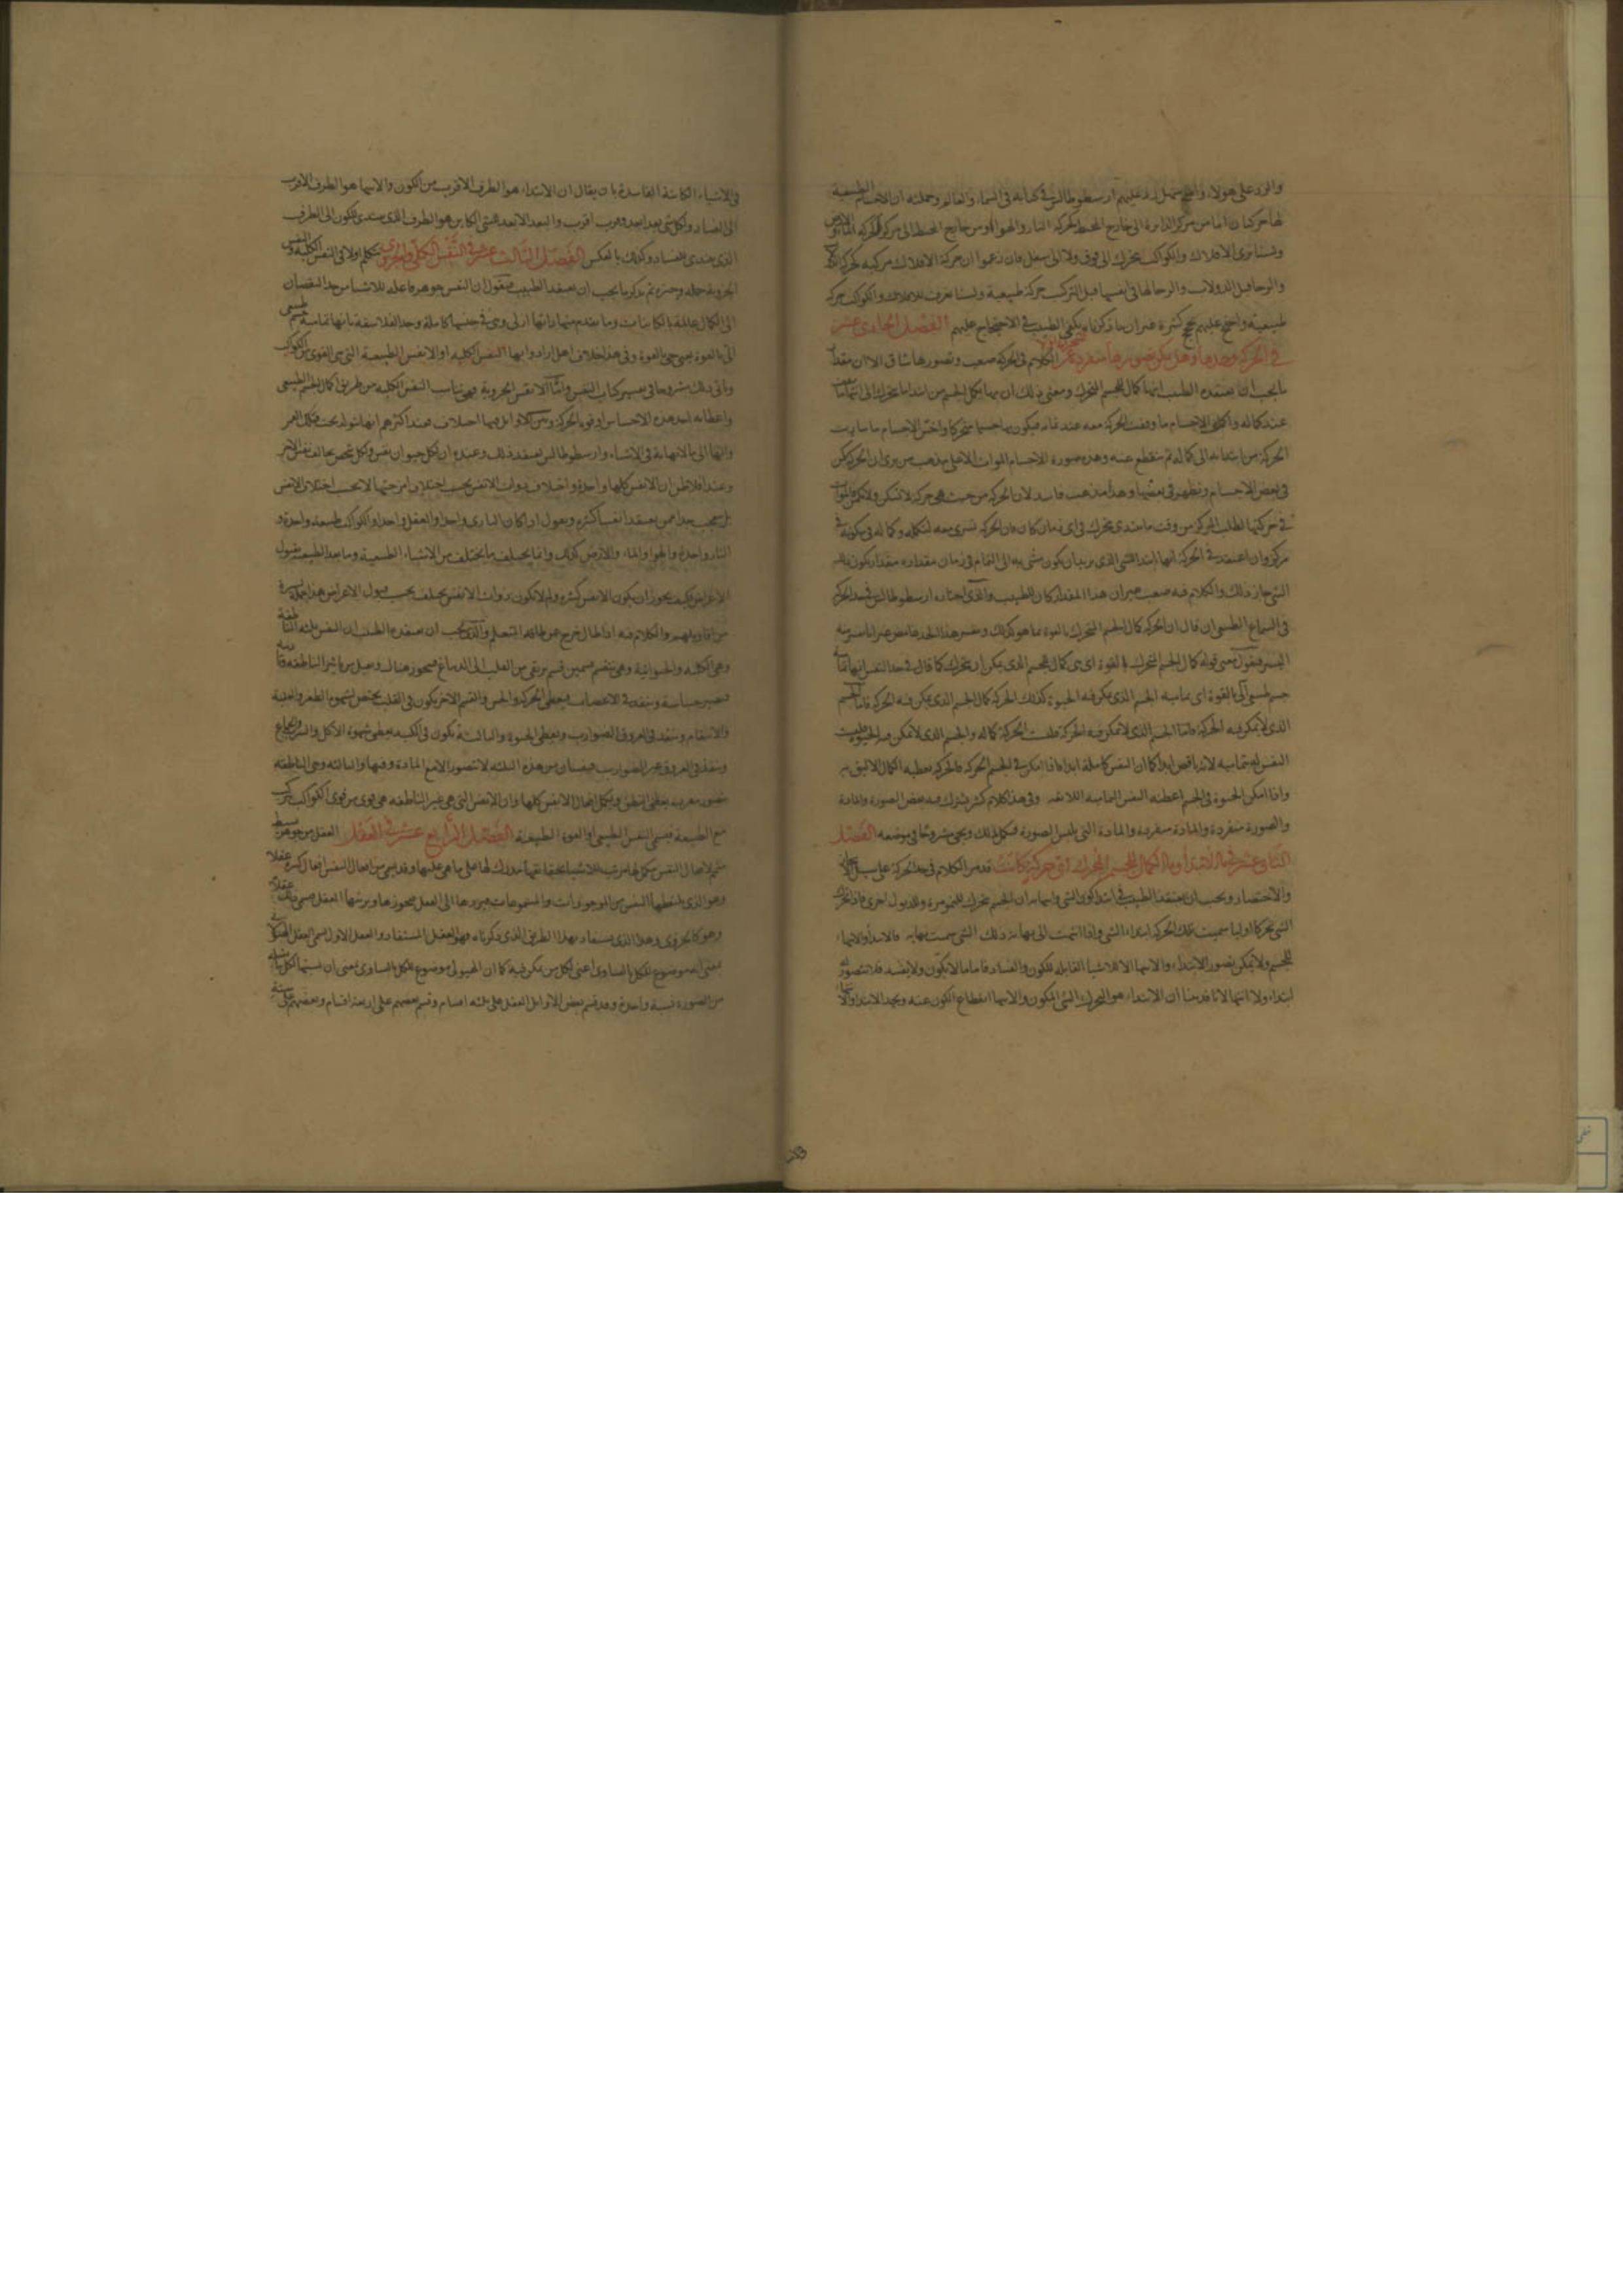 والرد على هولاء واضح سهل رد عليهم ارسطوطاليس في كتابه في السماء والعالم وجملته ان الاجسام الطبيعية
لها حركتان اما من مركز الدائرة الى خارج المحيط كحركة النار والهواء او من خارج المحيط الى مركز كحركة الماء والارض
ولسنا نرى الافلاك والكواكب تتحرك الى فوق ولا الى سفل فان زعموا ان حركة الافلاك مركبة كحركة
والرحا قيل الدولاب والرحا لها في انفسها قبل التركيب حركة طبيعية ولسنا نعرف للافلاك والكواكب حركة
طبيعية واحتج عليهم بحجج كثيرة غير ان ما ذكرناه يكفي الطبيب في الاحتجاج عليهم الفصل الحادى عشر
في الحركة وحدها وهل يمكن تصورها منفردة الكلام في الحركة صعب وتصورها شاق الا ان مقدار
ما يجب ان يعتقده الطبيب انها كمال للجسم المتحرك ومعنى ذلك ان بها يكمل الجسم من ابتداء ما يتحرك الى انتهاء
عند كماله واكمل الاجسام ما وقفت الحركة معه عند فيكون بها جسما متحركا واخس الاجسام ما
الحركة من ابتدائه الى كماله ثم تنقطع عنه وهذه صورة الاجسام الموات
في بعض الاجسام وتظهر في بعضها وهذا مذهب فاسد لان الحركة من حيث هي حركة لا تسكن
في حركتها لطلب المركز من وقت ما يبتدى يتحرك في اى زمان كان فان الحركة تسرى معه لتكمله وكماله في كونه في
مركزه وان اعتقد في الحركة انها ابتداء الشي الذى يريد ان يكون شي به الى التمام في زمان مقداره مقدار كون
الشي جاز ذلك والكلام فيه صعب غير ان هذا المقدار كان للطبيب والذى اختاره ارسطوطاليس في حد الحركة
في السماع الطبيعي ان قال ان الحركة كمال الجسم المتحرك بالقوة بما هو كذلك وتفسير هذا الحد غامض
فنقول معنى قوله كمال الجسم المتحرك بالقوة اى هي كمال للجسم الذى يمكن ان يتحرك كما قال في حد النفس انها تمامية
جسم طبيعي آلى بالقوة اى تمامية الجسم الذى يمكن فيه الحيوة كذلك الحركة كمال الجسم الذى يمكن فيه الحركة فاما الجسم
الذى لا يمكن فيه الحركة الحركة كماله والجسم الذى لا يمكن فيه الحيوة
النفس تمامية لانه ناقص ابدا كما ان النفس كاملة ابدا فاذا امكن في الجسم الحركة فالحركة تعطيه الكمال الاليق به
واذا امكن الحيوة في الجسم اعطته النفس التمامية اللائقة وفي هذا كلام كثير يشرك فيه بعض الصورة والمادة
والصورة منفردة والمادة منفردة والمادة التي تلبس الصورة ويجي مشروحا في موضعه الفصل
الثاني عشر في الابتداء وما الكمال للجسم المتحرك اى حركة كانت قد مر الكلام في حد الحركة على سبيل
والاختصار ويجب ان يعتقد الطبيب في ابتداء كون الشي وانتهائه ان الجسم يتحرك للنمو مرة وللذبول اخرى فاذا تحرك
الشي تحركا اوليا سميت تلك الحركة ابتداء الشي واذا انتهت الى نهاية ذلك الشي سميت نهاية فالابتداء والانتهاء
للجسم ولا يمكن تصور الابتداء والانتهاء الا للاشياء القابلة للكون والفساد فاما ما لا يتكون ولا يفسد فلا تتصور له
ابتداء ولا انتهاء لانا قد بينا ان الابتداء هو الحركة الشي المكون والانتهاء انقطاع الكون عنه ويحد الابتداء والانتهاء
في الاشياء الكائنة الفاسدة بان يقال ان الابتداء هو الطرف الاقرب من الكون والانتهاء هو الطرف الاقرب
الى الفساد ولكل شي بعد ابعد وقرب اقرب والبعد الابعد للشي الكاين هو الطرف الذى يبتدى بالكون الى الطرف
الذى يبتدى بالفساد وكذلك بالعكس الفصل الثالث عشر في النفس الكلي والجزئي نتكلم اولا في النفس الكلية والنفس
الجزوية جملة ثم نذكر ما يجب ان يعتقد الطبيب فنقول ان النفس جوهرة فاعلة للاشياء من حد النقصان
الى الكمال عالمة بالكائنات وما تقدم منها كاملة وحد الفلاسفة بانها تمامية جسم طبيعي
آلى بالقوة يعني حي بالقوة وفي هذا خلاف هل ارادوا بها النفس الكلية او الانفس الطبيعية التي هي القوى من الكواكب
وياتي ذلك مشروحا في تفسير كتاب النفس واما الانفس الجزوية فهي تناسب النفس الكلية من طريق اكمال الجسم الطبيعي
واعطائه احد هذه الاحساس او قوة الحركة وبين الاوائل فيها اختلاف فعند اكثرهم انها تتولد
وانها الى ما لا نهاية في الاشياء وارسطوطاليس يعتقد ذلك وعنده ان لكل حيوان نفس ولكل شخص يخالف نفس الاخر
وعند افلاطن ان الانفس كلها واحدة واختلاف ذوات الانفس بحسب اختلاف امزجتها لا بحسب اختلاف الانفس
بل يتعجب جدا ممن يعتقد انفسا كثيرة ويقول اذا كان البارى واحدا والعقل واحدا والكواكب طبيعة واحدة و
النار واحدة والهواء والماء والارض كذلك وانما يختلف ما يختلف من الاشياء الطبيعية وما بعد الطبيعة بقبول
الاعراض فكيف يجوز ان يكون الانفس كثيرة ولم لا تكون ذوات الانفس تختلف بحسب قبول الاعراض هذا جملة يسيرة
من اقاويلهم والكلام فيه اذا طال خرج عن طاقة المتعلم والذى يجب ان يعتقده الطبيب ان النفس ثلثة الناطقة
وهي الكلية والحيوانية وهي تنقسم قسمين قسم يرقى من القلب الى الدماغ
فتصير حساسة وتنفذ في الاعصاب فيعطى الحركة والحس والقسم الاخر يكون في القلب يختص بشهوة الظفر والغلبة
والانتقام وتنفذ في العروق الضوارب وتعطي الحيوة والثالثة تكون في الكبد يعطى شهوة الاكل والشرب والجماع
وتنفذ في العروق غير الضوارب فنفسان من هذه الثلثة لا تتصور الا مع المادة وفيها والثالثة وهي الناطقة
تتصور تعطي النطق وتكمل افعال الانفس كلها وان الانفس التي هي غير الناطقة هي قوى من قوى الكواكب تركب
مع الطبيعة فتسمى النفس الطبيعي او القوة الطبيعية الفصل الرابع عشر في العقل العقل من جوهر بسيط
متمم لافعال النفس مكمل لها مرتب للاشياء بحقائقها مدرك لها على ما هي عليها وقد يسمى من افعال النفس افعال كثيرة عقلا
وهو الذى يلتقطها النفس من الموجودات والمسموعات فيبرزها الى العقل فيحوزها ويزنها العقل فتسمى ذلك عقلا
وهو كالجزوى وهذا الذى يستفاد بهذا الطريق الذى ذكرناه فهو العقل المستفاد والعقل الاول يسمى العقل الهيولى
بمعنى انه موضوع للكل بالتساوى اعني لكل من يمكن فيه كما ان الهيولى موضوع للكل بالتساوى بمعنى ان نسبتها لكل
من الصورة نسبة واحدة وقد قسم بعض الاوايل العقل على ثلثة اقسام وقسم بعضهم على اربعة اقسام وبعضهم على ستة